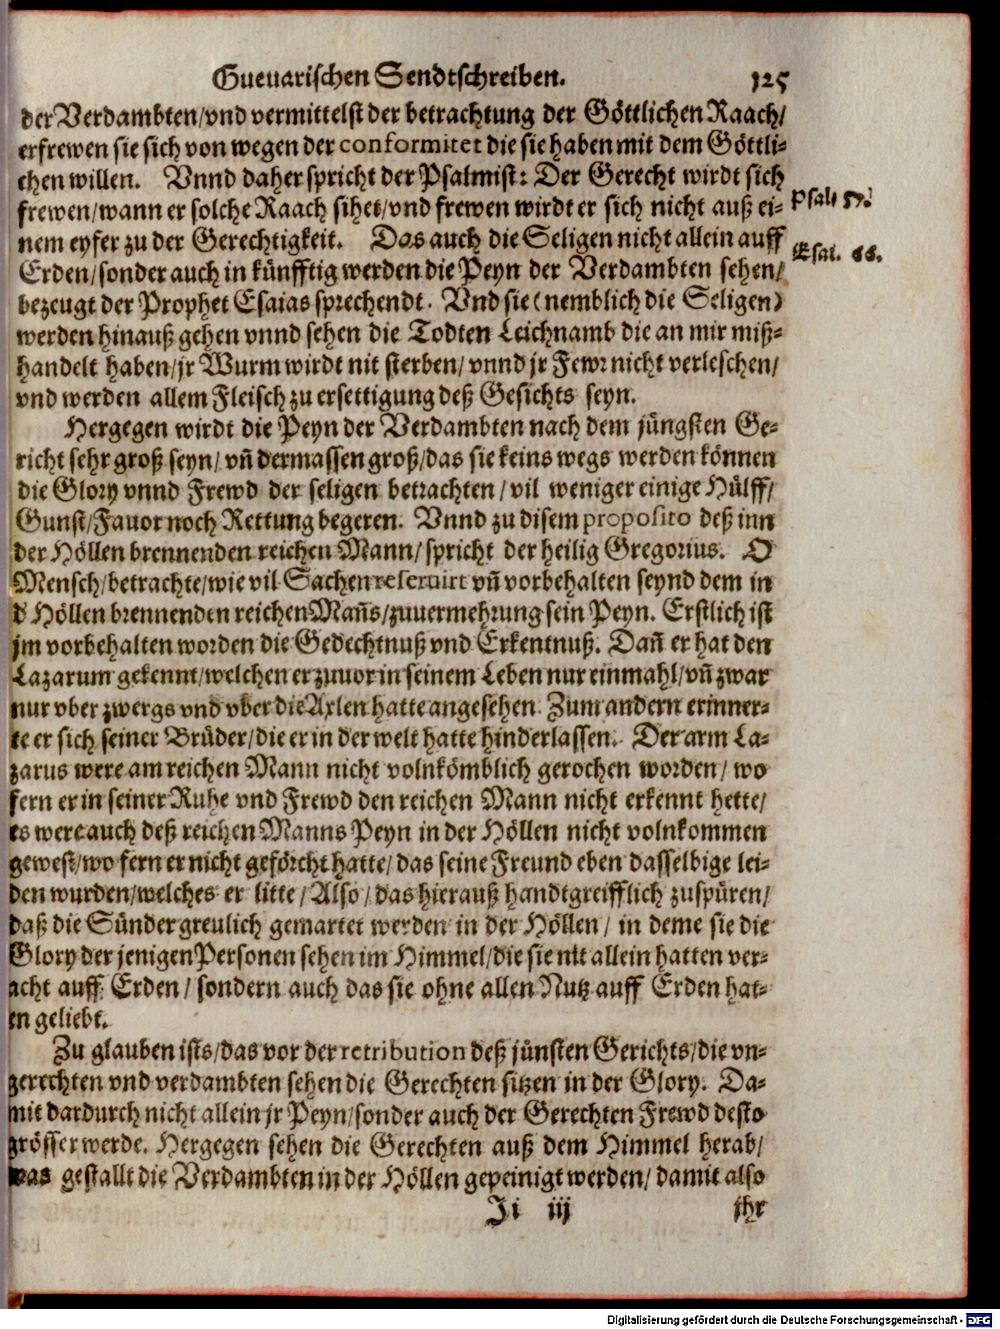 Gueuarischen Sendtschreiben. 125
der Verdambten/vnd vermittelst der betrachtung der Göttlichen Raach/
erfrewen sie sich von wegen der conformitet die sie haben mit dem Göttli-
chen willen. Vnnd daher spricht der Psalmist: Der Gerecht wirdt sich
frewen/wann er solche Raach sihet/vnd frewen wirdt er sich nicht auß ei-
Psal. 57.
nem eyfer zu der Gerechtigkeit. Das auch die Seligen nicht allein auff
Esai. 66.
Erden/sonder auch in künfftig werden die Peyn der Verdambten sehen/
bezeugt der Prophet Esaias sprechendt. Vnd sie (nemblich die Seligen)
werden hinauß gehen vnnd sehen die Todten Leichnamb die an mir miß-
handelt haben/jr Wurm wirdt nit sterben/vnnd jr Fewr nicht verleschen/
vnd werden allem Fleisch zu ersettigung deß Gesichts seyn.
Hergegen wirdt die Peyn der Verdambten nach dem jüngsten Ge-
richt sehr groß seyn/vñ dermassen groß/das sie keins wegs werden können
die Glory vnnd Frewd der seligen betrachten/vil weniger einige Hülff/
Gunst/Fauor noch Rettung begeren. Vnnd zu disem proposito deß inn
der Höllen brennenden reichen Mann/spricht der heilig Gregorius. O
Mensch/betrachte/wie vil Sachen reseruirt vñ vorbehalten seynd dem in
d' Höllen brennenden reichen Mañs/zuuermehrung sein Peyn. Erstlich ist
jm vorbehalten worden die Gedechtnuß vnd Erkentnuß. Dañ er hat den
Lazarum gekennt/welchen er zuuor in seinem Leben nur einmahl/vñ zwar
nur vber zwergs vnd vber die Axlen hatte angesehen. Zum andern erinner-
te er sich seiner Brüder/die er in der welt hatte hinderlassen. Der arm La-
zarus were am reichen Mann nicht volnkömblich gerochen worden/wo
fern er in seiner Ruhe vnd Frewd den reichen Mann nicht erkennt hette/
es were auch deß reichen Manns Peyn in der Höllen nicht volnkommen
gewest/wo fern er nicht geförcht hatte/das seine Freund eben dasselbige lei-
den wurden/welches er litte/Also/das hierauß handtgreifflich zuspüren/
daß die Sünder greulich gemartet werden in der Höllen/in deme sie die
Glory der jenigen Personen sehen im Himmel/die sie nit allein hatten ver-
acht auff Erden/sondern auch das sie ohne allen Nutz auff Erden hat-
en geliebt.
Zu glauben ists/das vor der retribution deß jünsten Gerichts/die vn-
gerechten vnd verdambten sehen die Gerechten sitzen in der Glory. Da-
mit dardurch nicht allein jr Peyn/sonder auch der Gerechten Frewd desto
grösser werde. Hergegen sehen die Gerechten auß dem Himmel herab/
was gestallt die Verdambten in der Höllen gepeinigt werden/damit also
Ji iij ihr
Digitalisierung gefördert durch die Deutsche Forschungsgemeinschaft - DFG